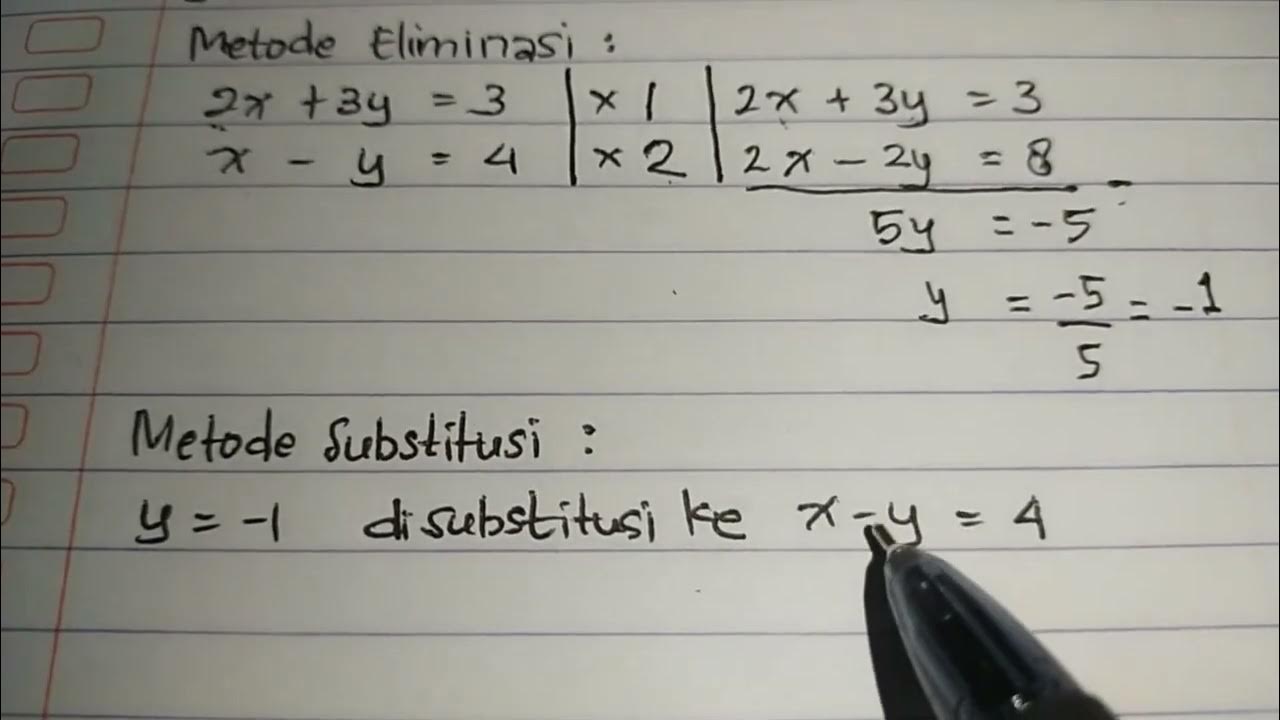 Metode Eliminasi :
2x + 3y = 3 | x 1 | 2x + 3y = 3
x - y = 4 | x 2 | 2x - 2y = 8 -
5y = -5
y = -5/5 = -1
Metode Substitusi :
y = -1 disubstitusi ke x - y = 4